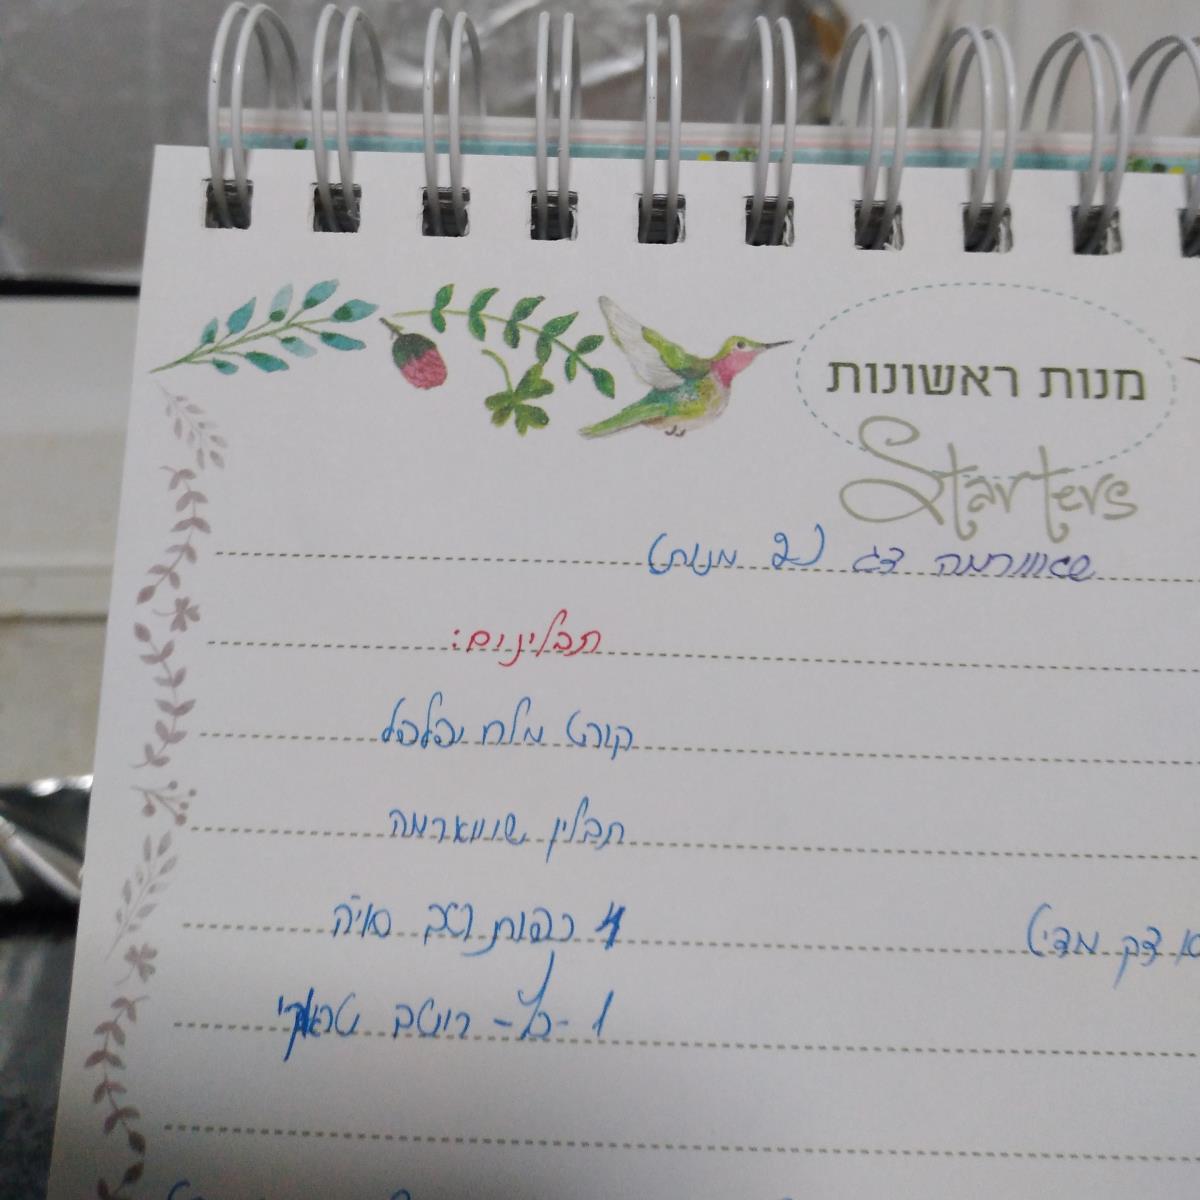 מנות ראשונות
Starters
שאוורמה דג (2 מנות)
תבלינים:
קורט מלח ופלפל
תבלין שווארמה
4 כפות רוטב סויה
דק מדי)
1 -כף- רוטב טראקי